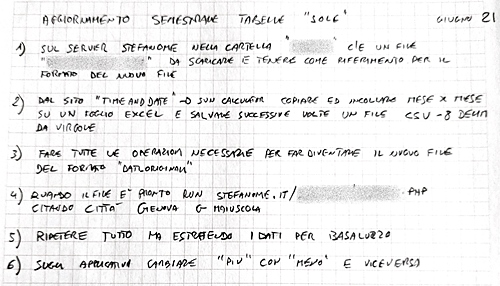 AGGIORNAMENTO SEMESTRALE TABELLE "SOLE" GIUGNO 21
1) SUL SERVER STEFANOME NELLA CARTELLA " " C'E UN FILE
" " DA SCARICARE E TENERE COME RIFERIMENTO PER IL
FORMATO DEL NUOVO FILE
2) DAL SITO "TIMEANDDATE" → SUN CALCULATOR COPIARE ED INCOLLARE MESE X MESE
SU UN FOGLIO EXCEL E SALVARE SUCCESSIVE VOLTE UN FILE CSV-8 DELIM
DA VIRGOLE
3) FARE TUTTE LE OPERAZIONI NECESSARIE PER FAR DIVENTARE IL NUOVO FILE
DEL FORMATO "DATIORIGINALI"
4) QUANDO IL FILE E' PRONTO RUN STEFANOME.IT/ .PHP
CITANDO CITTA' GENOVA G MAIUSCOLA
5) RIPETERE TUTTO MA ESTRAENDO I DATI PER BASALUZZO
6) SUGLI APPLICATIVI CAMBIARE "PIU'" CON "MENO" E VICEVERSA